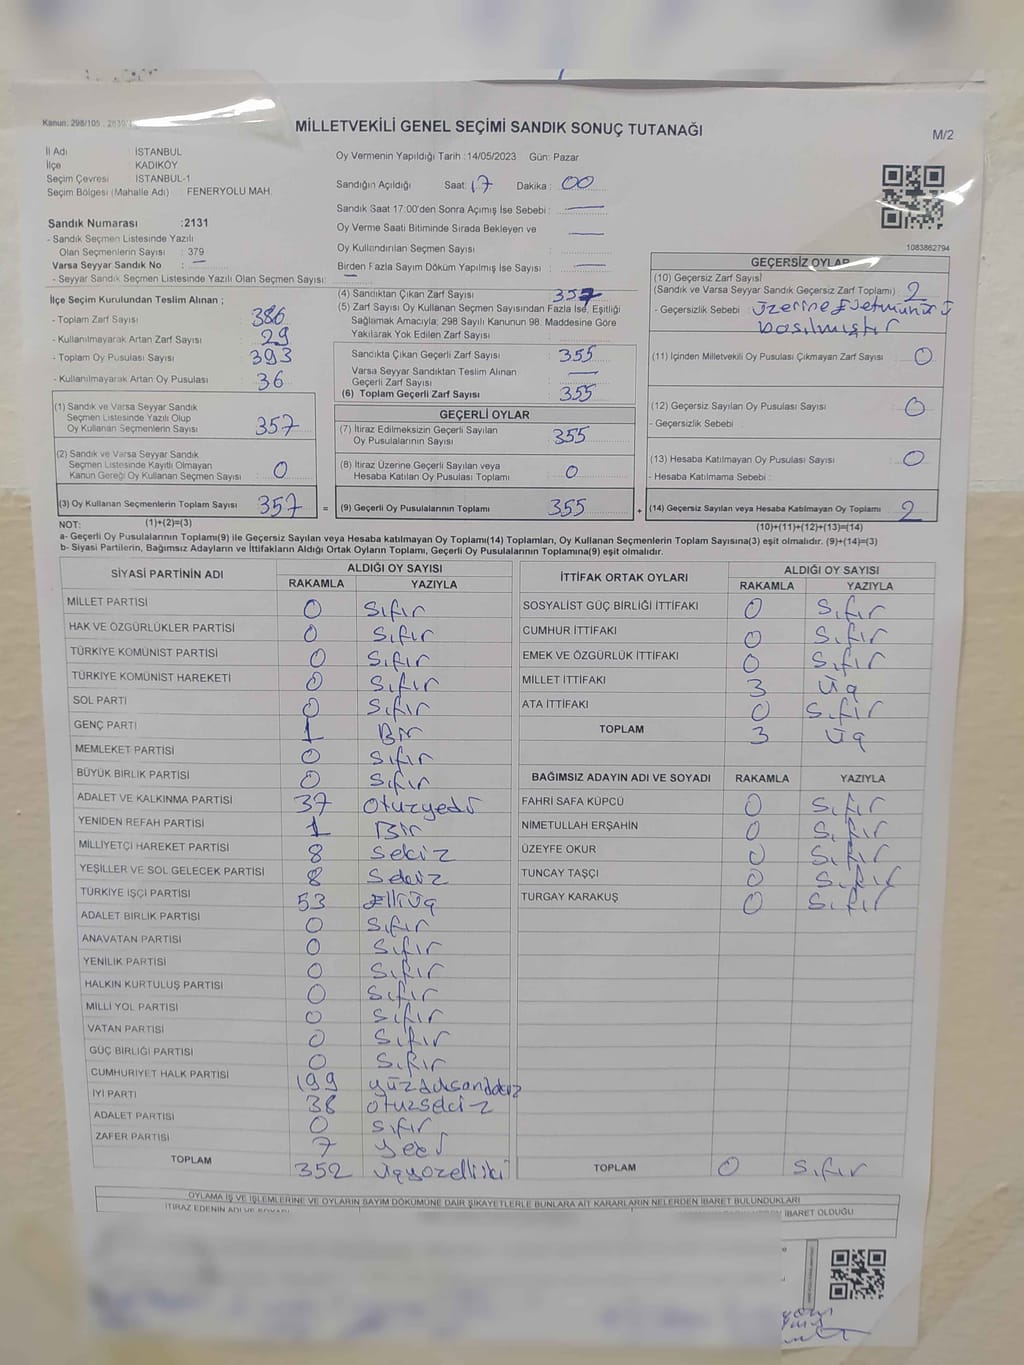 Kanun: 298/105 , 2839/
MİLLETVEKİLİ GENEL SEÇİMİ SANDIK SONUÇ TUTANAĞI
M/2
İl Adı : İSTANBUL
İlçe : KADIKÖY
Seçim Çevresi : İSTANBUL-1
Seçim Bölgesi (Mahalle Adı) : FENERYOLU MAH.
Sandık Numarası :2131
- Sandık Seçmen Listesinde Yazılı
Olan Seçmenlerin Sayısı : 379
Varsa Seyyar Sandık No : —
- Seyyar Sandık Seçmen Listesinde Yazılı Olan Seçmen Sayısı: —
Oy Vermenin Yapıldığı Tarih :14/05/2023 Gün: Pazar
Sandığın Açıldığı Saat: 17 Dakika : 00
Sandık Saat 17:00'den Sonra Açımış İse Sebebi : —
Oy Verme Saati Bitiminde Sırada Bekleyen ve
Oy Kullandırılan Seçmen Sayısı : —
Birden Fazla Sayım Döküm Yapılmış İse Sayısı : —
1083862794
İlçe Seçim Kurulundan Teslim Alınan ;
- Toplam Zarf Sayısı : 386
- Kullanılmayarak Artan Zarf Sayısı : 29
- Toplam Oy Pusulası Sayısı : 393
- Kullanılmayarak Artan Oy Pusulası : 36
(1) Sandık ve Varsa Seyyar Sandık
Seçmen Listesinde Yazılı Olup
Oy Kullanan Seçmenlerin Sayısı : 357
(2) Sandık ve Varsa Seyyar Sandık
Seçmen Listesinde Kayıtlı Olmayan
Kanun Gereği Oy Kullanan Seçmen Sayısı : 0
(3) Oy Kullanan Seçmenlerin Toplam Sayısı : 357 =
(4) Sandıktan Çıkan Zarf Sayısı : 357
(5) Zarf Sayısı Oy Kullanan Seçmen Sayısından Fazla İse, Eşitliği
Sağlamak Amacıyla; 298 Sayılı Kanunun 98. Maddesine Göre
Yakılarak Yok Edilen Zarf Sayısı :
Sandıkta Çıkan Geçerli Zarf Sayısı : 355
Varsa Seyyar Sandıktan Teslim Alınan
Geçerli Zarf Sayısı : —
(6) Toplam Geçerli Zarf Sayısı : 355
GEÇERLİ OYLAR
(7) İtiraz Edilmeksizin Geçerli Sayılan
Oy Pusulalarının Sayısı : 355
(8) İtiraz Üzerine Geçerli Sayılan veya
Hesaba Katılan Oy Pusulaları Toplamı : 0
(9) Geçerli Oy Pusulalarının Toplamı : 355 +
GEÇERSİZ OYLAR
(10) Geçersiz Zarf Sayısı
(Sandık ve Varsa Seyyar Sandık Geçersiz Zarf Toplamı) : 2
- Geçersizlik Sebebi : üzerine Evet mührü
basılmıştır
(11) İçinden Milletvekili Oy Pusulası Çıkmayan Zarf Sayısı : 0
(12) Geçersiz Sayılan Oy Pusulası Sayısı : 0
- Geçersizlik Sebebi :
(13) Hesaba Katılmayan Oy Pusulası Sayısı : 0
- Hesaba Katılmama Sebebi :
(14) Geçersiz Sayılan veya Hesaba Katılmayan Oy Toplamı : 2
NOT: (1)+(2)=(3) (10)+(11)+(12)+(13)=(14)
a- Geçerli Oy Pusulalarının Toplamı(9) ile Geçersiz Sayılan veya Hesaba katılmayan Oy Toplamı(14) Toplamları, Oy Kullanan Seçmenlerin Toplam Sayısına(3) eşit olmalıdır. (9)+(14)=(3)
b- Siyasi Partilerin, Bağımsız Adayların ve İttifakların Aldığı Ortak Oyların Toplamı, Geçerli Oy Pusulalarının Toplamına(9) eşit olmalıdır.
SİYASİ PARTİNİN ADI ALDIĞI OY SAYISI
RAKAMLA YAZIYLA
MİLLET PARTİSİ 0 Sıfır
HAK VE ÖZGÜRLÜKLER PARTİSİ 0 Sıfır
TÜRKİYE KOMÜNİST PARTİSİ 0 Sıfır
TÜRKİYE KOMÜNİST HAREKETİ 0 Sıfır
SOL PARTİ 0 Sıfır
GENÇ PARTİ 1 Bir
MEMLEKET PARTİSİ 0 Sıfır
BÜYÜK BİRLİK PARTİSİ 0 Sıfır
ADALET VE KALKINMA PARTİSİ 37 Otuzyedi
YENİDEN REFAH PARTİSİ 1 Bir
MİLLİYETÇİ HAREKET PARTİSİ 8 Sekiz
YEŞİLLER VE SOL GELECEK PARTİSİ 8 Sekiz
TÜRKİYE İŞÇİ PARTİSİ 53 Elliüç
ADALET BİRLİK PARTİSİ 0 Sıfır
ANAVATAN PARTİSİ 0 Sıfır
YENİLİK PARTİSİ 0 Sıfır
HALKIN KURTULUŞ PARTİSİ 0 Sıfır
MİLLİ YOL PARTİSİ 0 Sıfır
VATAN PARTİSİ 0 Sıfır
GÜÇ BİRLİĞİ PARTİSİ 0 Sıfır
CUMHURİYET HALK PARTİSİ 199
İYİ PARTİ 38 Otuzsekiz
ADALET PARTİSİ 0 Sıfır
ZAFER PARTİSİ 7 Yedi
TOPLAM 352 Üçyüzelliiki
İTTİFAK ORTAK OYLARI ALDIĞI OY SAYISI
RAKAMLA YAZIYLA
SOSYALİST GÜÇ BİRLİĞİ İTTİFAKI 0 Sıfır
CUMHUR İTTİFAKI 0 Sıfır
EMEK VE ÖZGÜRLÜK İTTİFAKI 0 Sıfır
MİLLET İTTİFAKI 3 Üç
ATA İTTİFAKI 0 Sıfır
TOPLAM 3 Üç
BAĞIMSIZ ADAYIN ADI VE SOYADI RAKAMLA YAZIYLA
FAHRİ SAFA KÜPCÜ 0 Sıfır
NİMETULLAH ERŞAHİN 0 Sıfır
ÜZEYFE OKUR 0 Sıfır
TUNCAY TAŞÇI 0 Sıfır
TURGAY KARAKUŞ 0 Sıfır
TOPLAM 0 Sıfır
OYLAMA İŞ VE İŞLEMLERİNE VE OYLARIN SAYIM DÖKÜMÜNE DAİR ŞİKAYETLERLE BUNLARA AİT KARARLARIN NELERDEN İBARET BULUNDUKLARI
İTİRAZ EDENİN ADI VE SOYADI İBARET OLDUĞU